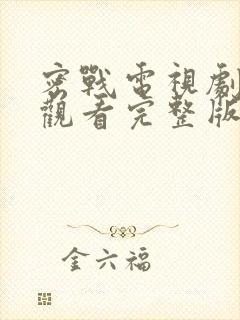 密戰電視劇
觀看完整版
金六福